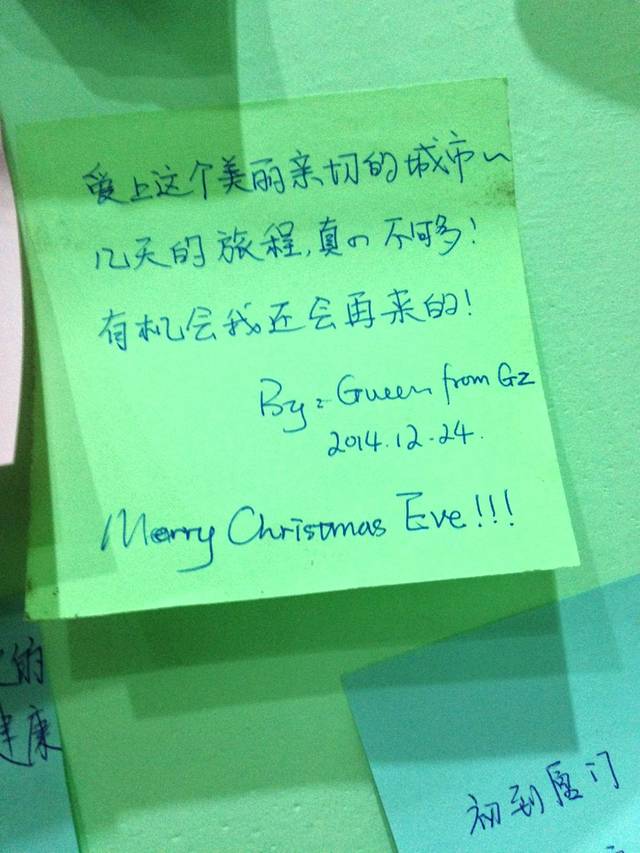 爱上这个美丽亲切的城市~
几天的旅程,真的不够多!
有机会我还会再来的!
By: Gueen from GZ
2014.12.24.
Merry Christmas Eve!!!
的
健康
初到厦门